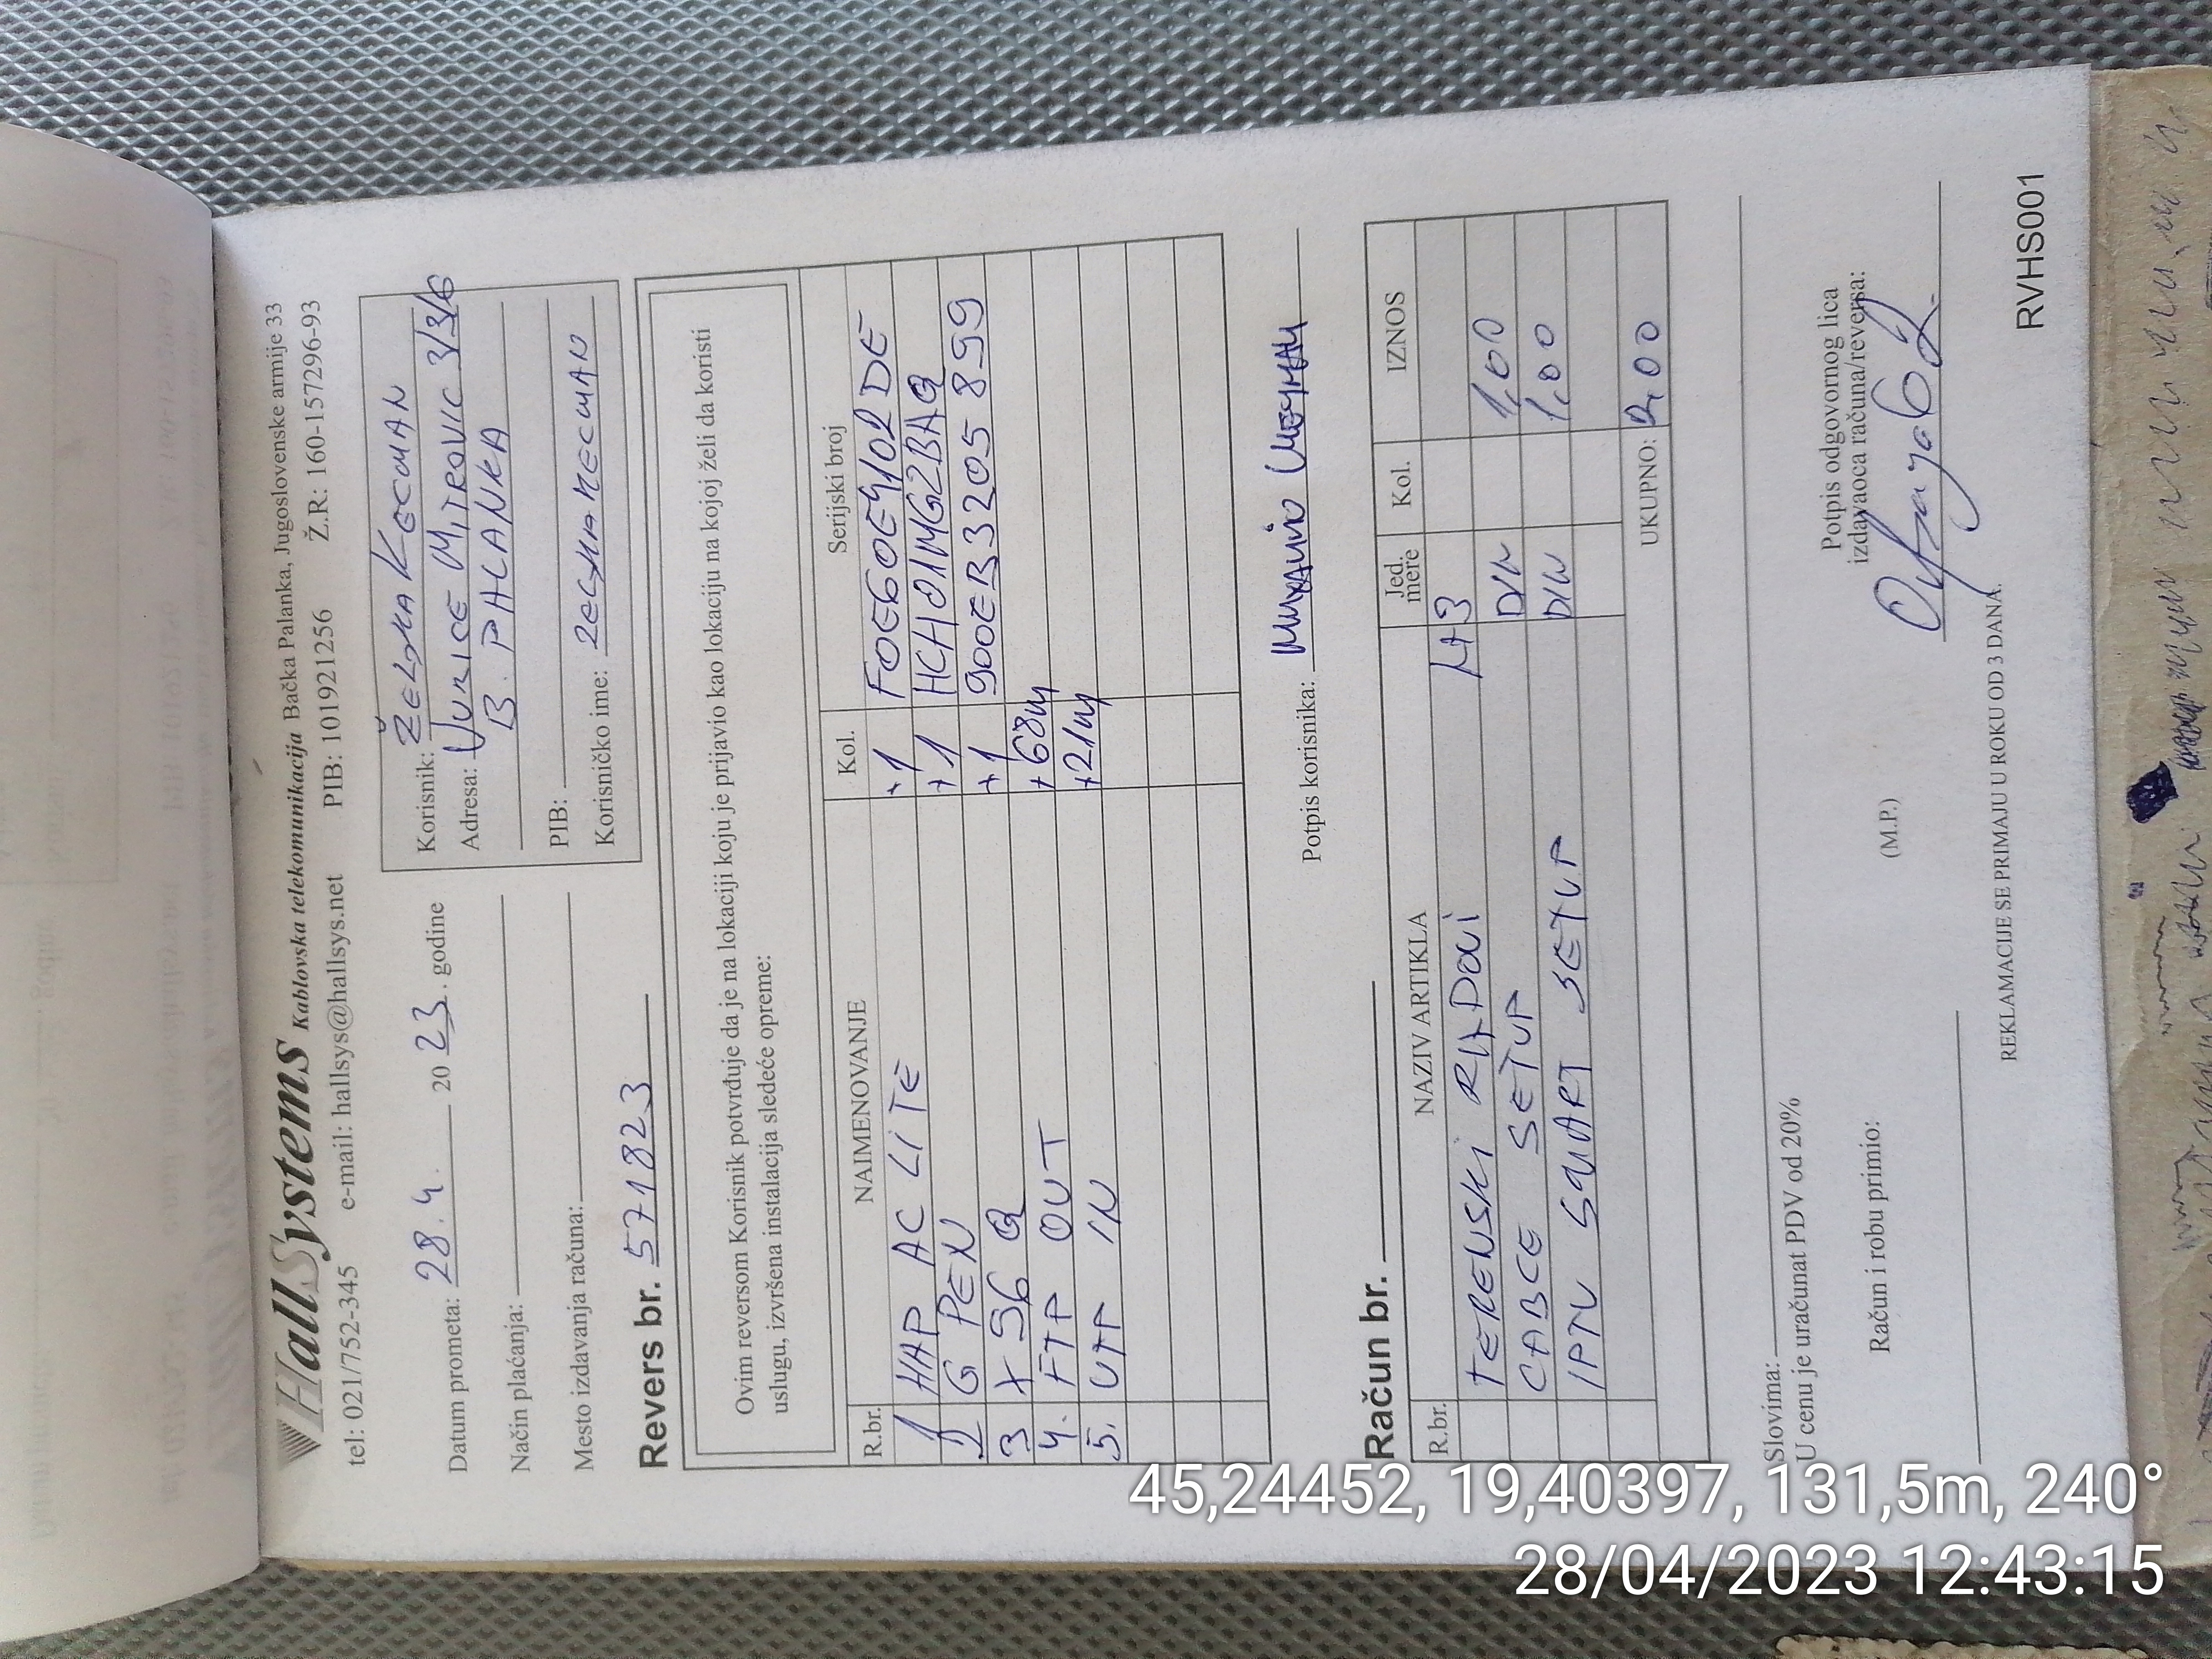 HallSystems Kablovska telekomunikacija Bačka Palanka, Jugoslovenske armije 33
tel: 021/752-345 e-mail: hallsys@hallsys.net PIB: 101921256 Ž.R: 160-157296-93
Datum prometa: 28.4. 2023. godine
Način plaćanja:
Mesto izdavanja računa:
Korisnik: ŽELJKA KECMAN
Adresa: MITROVIC 3/3/6
B. PALANKA
PIB:
Korisničko ime:
Revers br. 571823
Ovim reversom Korisnik potvrđuje da je na lokaciji koju je prijavio kao lokaciju na kojoj želi da koristi
uslugu, izvršena instalacija sledeće opreme:
R.br. NAIMENOVANJE Kol. Serijski broj
1 HAP AC LITE +1 F0E60E4102DE
2 G PEN +1 HCH01MG2BAQ
3 X 96 Q +1 900EB3205899
4. FTP OUT +68m
5. UTP IN +21m
Potpis korisnika:
Račun br.
R.br. NAZIV ARTIKLA Jed. mere Kol. IZNOS
TERENSKI RADOVI
CABLE SETUP DIN 1,00
IPTV SMART SETUP DIN 1,00
UKUPNO: 2,00
Slovima:
U cenu je uračunat PDV od 20%
Račun i robu primio:
(M.P.)
Potpis odgovornog lica
izdavaoca računa/reversa:
REKLAMACIJE SE PRIMAJU U ROKU OD 3 DANA.
RVHS001
45,24452, 19,40397, 131,5m, 240°
28/04/2023 12:43:15